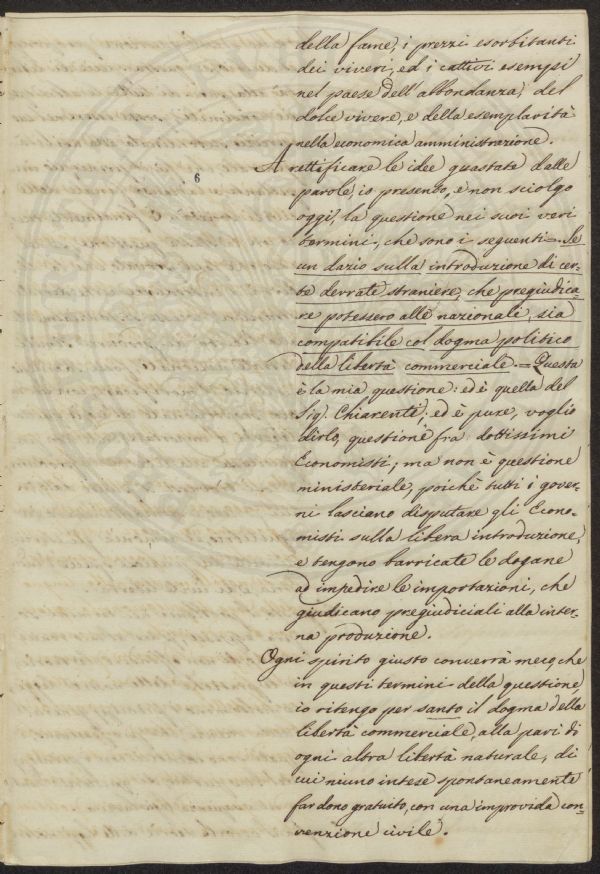 della fame, i prezzi esorbitanti
dei viveri, ed i cattivi esempi
nel paese dell'abbondanza, del
dolce vivere, e della esemplarità
nella economica amministrazione.
A rettificare le idee guastate dalle
6
parole, io presento, e non sciolgo
oggi, la questione nei suoi veri
termini, che sono i seguenti = Se
un dazio sulla introduzione di cer-
te derrate straniere, che pregiudica-
re potessero alle nazionali, sia
compatibile col dogma politico
della libertà commerciale. = Questa
è la mia questione: ed è quella del
Sig. Chiarenti; ed è pure, voglio
dirlo, questione fra dottissimi
Economisti; ma non è questione
ministeriale, poichè tutti i gover-
ni lasciano disputare gli Econo-
misti sulla libera introduzione,
e tengono barricate le dogane
ad impedire le importazioni, che
giudicano pregiudiciali alla inter-
na produzione.
Ogni spirito giusto converrà meco, che
in questi termini della questione
io ritengo per santo il dogma della
libertà commerciale, alla pari di
ogni altra libertà naturale, di
cui niuno intese spontaneamente
far dono gratuito, con una improvida con-
venzione civile.